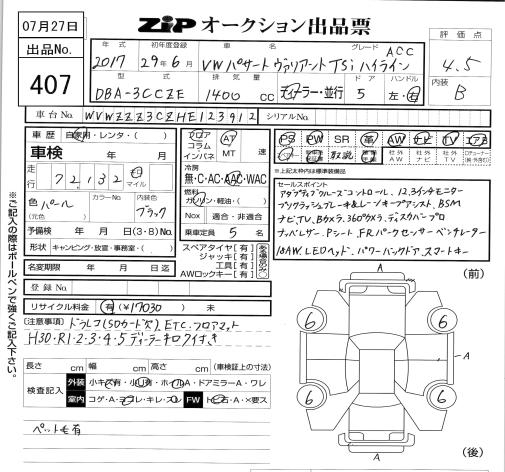 07月27日
ZiP オークション出品票
出品No.
407
年式 初年度登録 車名 グレード
2017 29年6月 VWパサートヴァリアントTSi ハイライン ACC
型式 排気量 ドア ハンドル
DBA-3CCZE 1400 cc ディーラー・並行 5 左・右
評価点
4.5
内装
B
車台No. WVWZZZ3CZHE123912 シリアルNo.
車歴 自家用・レンタ( )
車検 年 月
走行 72,132 キロ マイル
色 パール カラーNo. 内装色 ブラック
(元色)
予備検 年 月 日(3・8)No.
形状 キャンピング・放置・事務室・( )
フロア コラム インパネ AT MT 速
冷房
無・C・AC・AAC・WAC
燃料
ガソリン・軽油・( )
Nox 適合・非適合
乗車定員 5 名
PS PW SR 革 AW ナビ TV エアB
取説
社外 AW 社外 ナビ 社外 TV
※上記太枠内は標準装備品
セールスポイント
アダプティブクルーズコントロール、12.3インチモニター
プリクラッシュブレーキ&レーンキープアシスト、BSM
ナビTV、Bカメラ、360°カメラ、ディスカバープロ
ナッパレザー、Pシート、F.Rパークセンサー、ベンチレーター
18AW、LEDヘッド、パワーバックドア、スマートキー
スペアタイヤ[有]
ジャッキ[有]
工具[有]
AWロックキー[有]
ある場合のみ○
名変期限 年 月 日迄
登録No.
リサイクル料金 有(¥17030) 未
(注意事項)ドラレコ(SDカード欠)、ETC、フロアマット
H30・R1・2・3・4・5ディーラーキロクイチ付き
長さ cm 幅 cm 高さ cm (車検証上の寸法)
検査記入 外装 小キズ有・小凹有・ホイルA・ドアミラーA・ワレ
室内 コゲ・A・ヨゴレ・キレ・スレ FW トビ石・A・×要ス
ペット毛有
※ご記入の際はボールペンで強くご記入下さい。
(前)
A
6 6
A
6 6
A
(後)